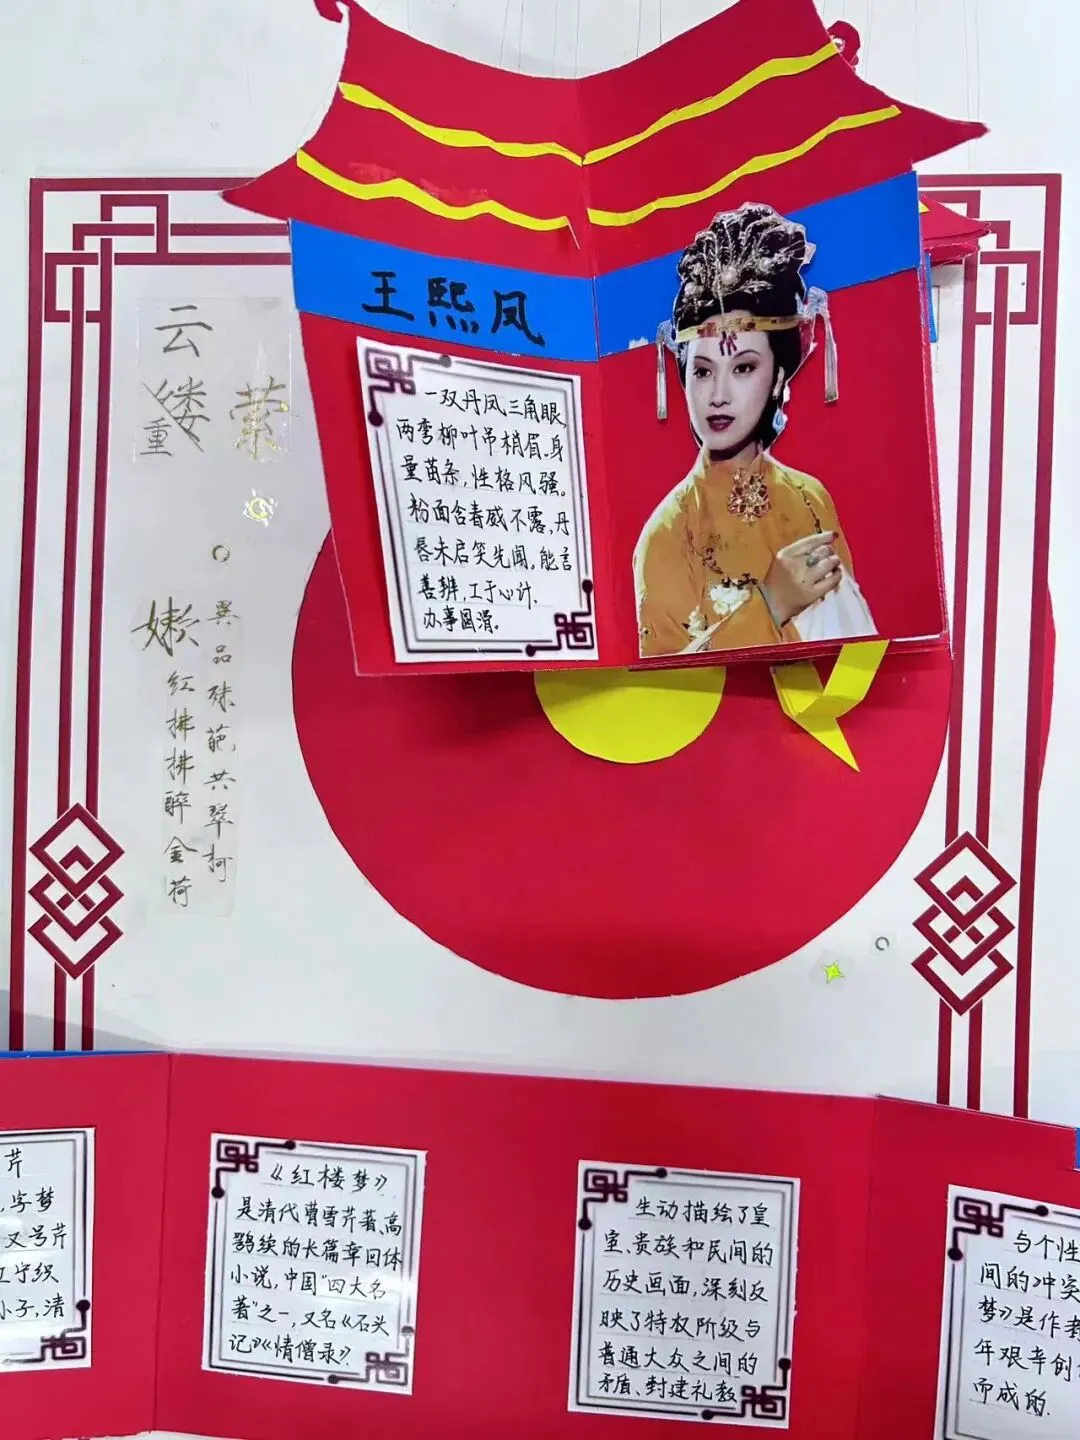 王熙凤
一双丹凤三角眼,
两弯柳叶吊梢眉。身
量苗条,性格风骚。
粉面含春威不露,丹
唇未启笑先闻。能言
善辨,工于心计.
办事圆滑。
云
缕
重
萦
嫩
红拂拂醉金荷
異品殊葩共翠柯
芹
,字梦
又号芹
江宁织
小子,清
《红楼梦》
是清代曹雪芹著、高
鹗续的长篇章回体
小说,中国"四大名
著"之一,又名《石头
记》《情僧录》.
生动描绘了皇
室、贵族和民间的
历史画面,深刻反
映了特权阶级与
普通大众之间的
矛盾、封建礼教
与个性
间的冲突
梦》是作者
年艰辛创
而成的.